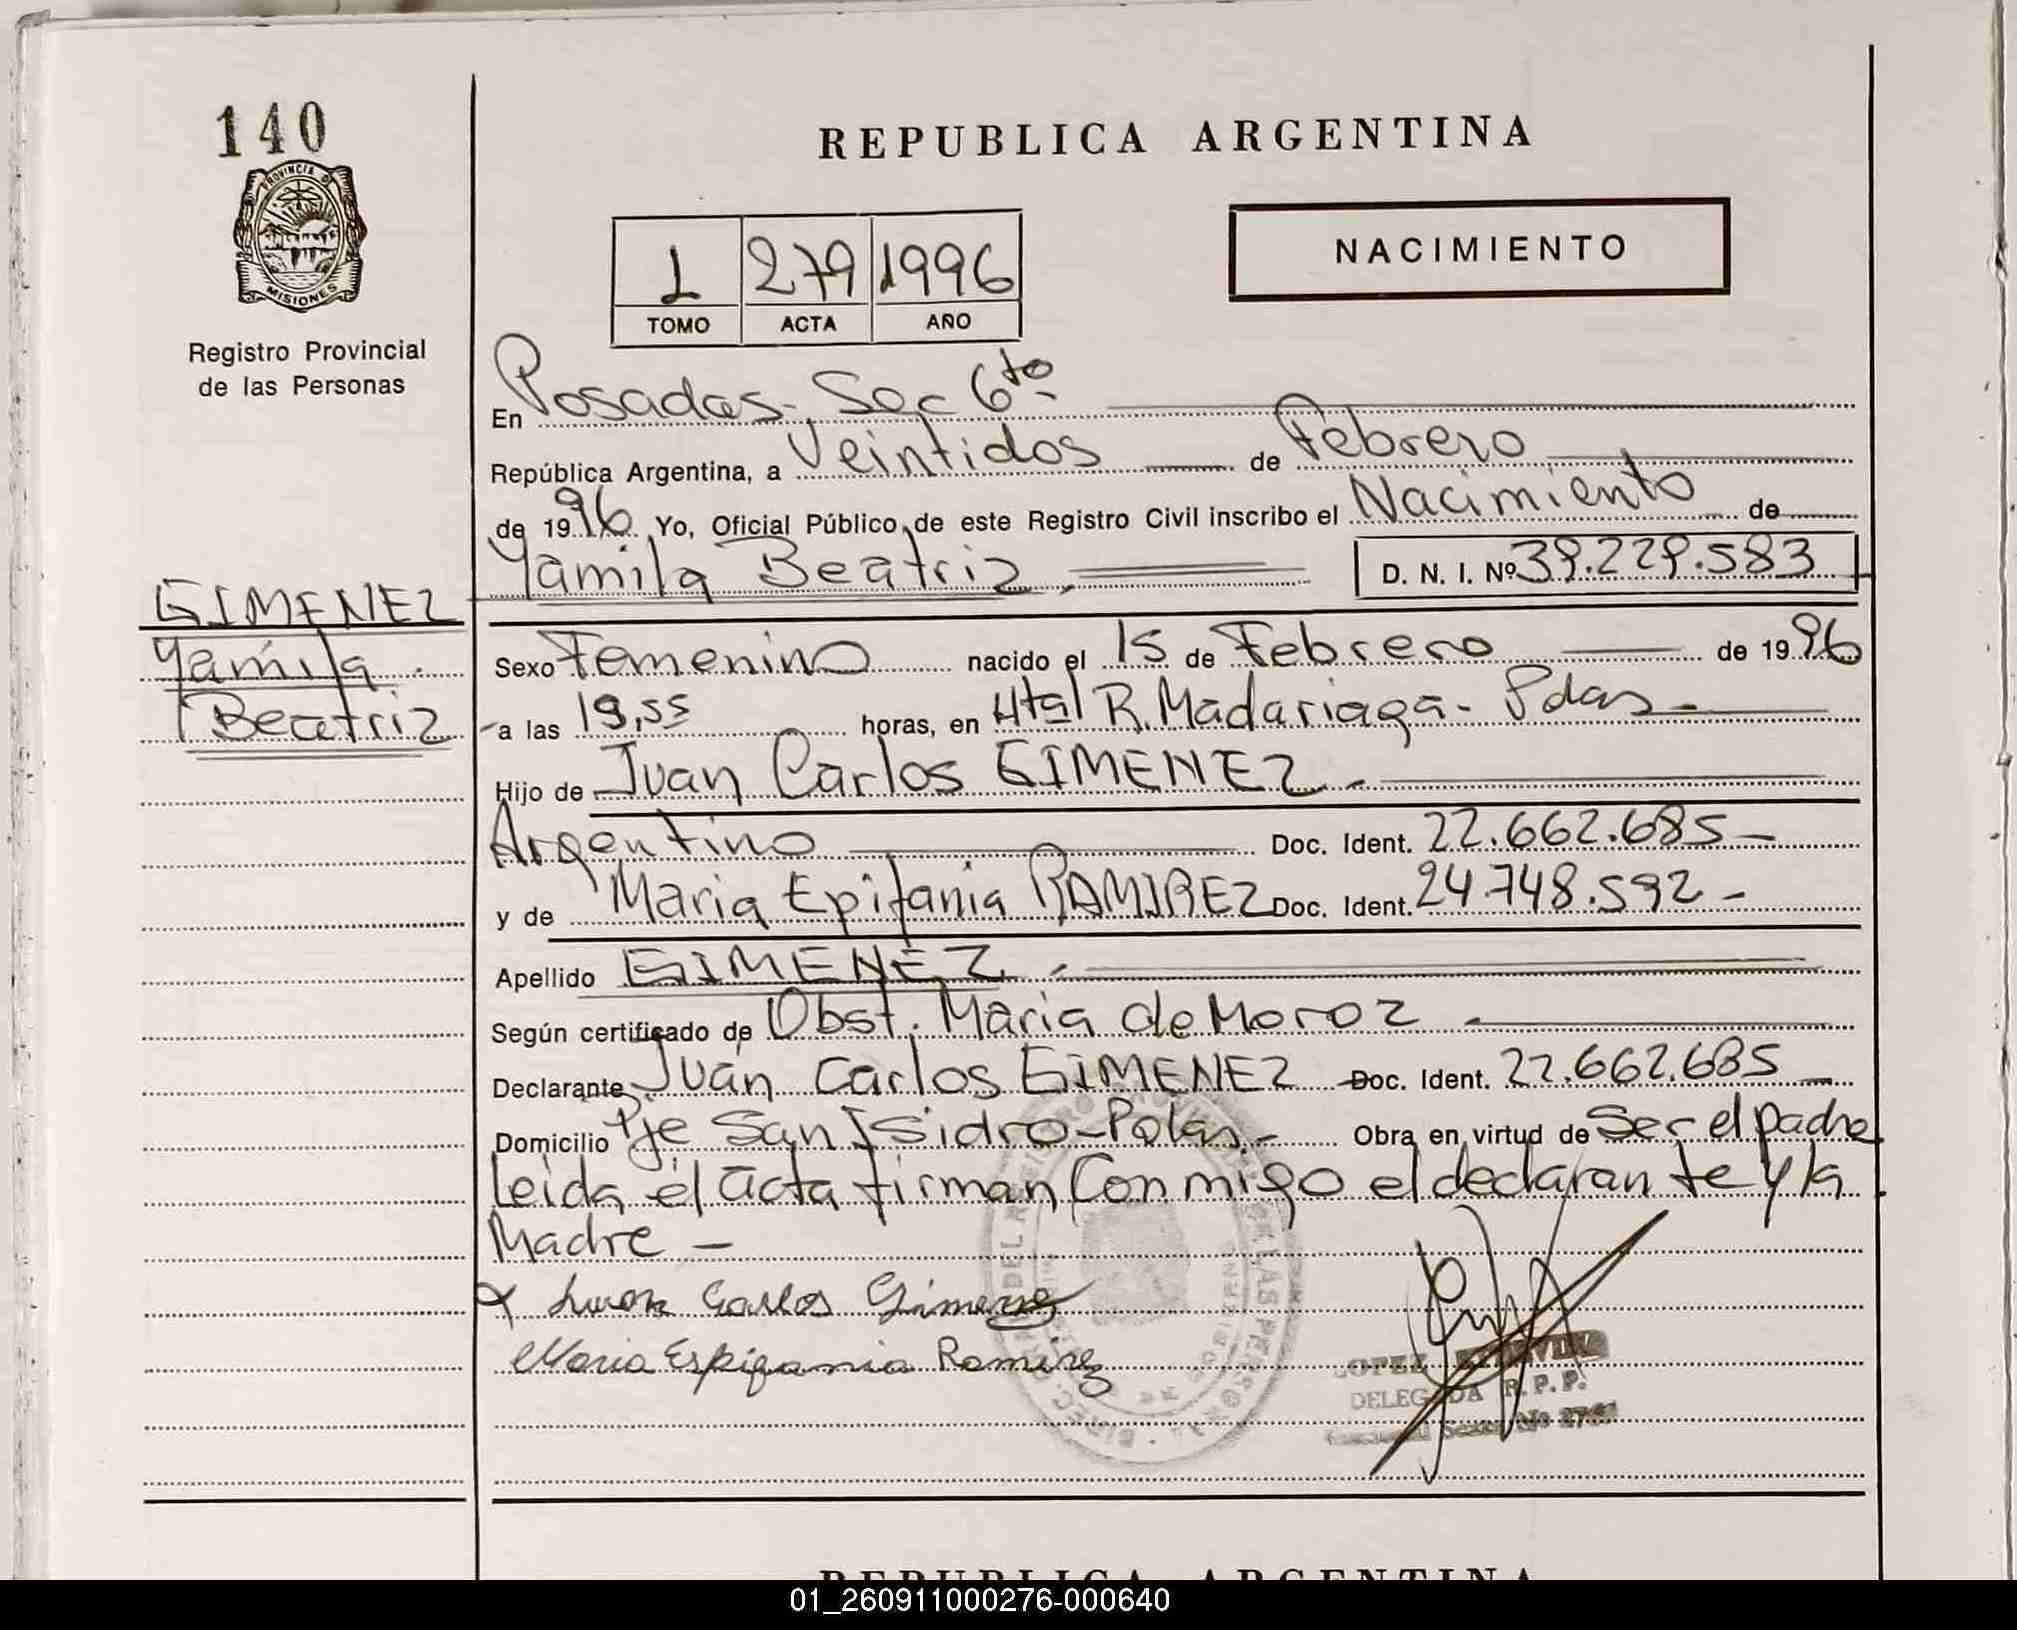 140
PROVINCIA DE
MISIONES
Registro Provincial
de las Personas
REPUBLICA ARGENTINA
NACIMIENTO
1 279 1996
TOMO ACTA AÑO
En Posadas - Sec 6to -
República Argentina, a Veintidos de Febrero
de 1996 Yo, Oficial Público de este Registro Civil inscribo el Nacimiento de
Yamila Beatriz D. N. I. Nº 39.229.583
GIMENEZ
Yamila
Beatriz
Sexo Femenino nacido el 15 de Febrero de 1996
a las 19,55 horas, en Htal R. Madariaga - Pdas -
Hijo de Juan Carlos GIMENEZ.
Argentino Doc. Ident. 22.662.685 -
y de Maria Epifania RAMIREZ Doc. Ident. 24.748.592 -
Apellido GIMENEZ
Según certificado de Obst. Maria de Moroz
Declarante Juan Carlos GIMENEZ Doc. Ident. 22.662.685
Domicilio Pje San Isidro - Pdas - Obra en virtud de Ser el padre
Leida el acta firman Conmigo el declarante y la
Madre -
Juan Carlos Gimenez
Maria Espifania Ramirez
LOPEZ
DELEGADA R. P. P.
01_260911000276-000640
REPUBLICA ARGENTINA